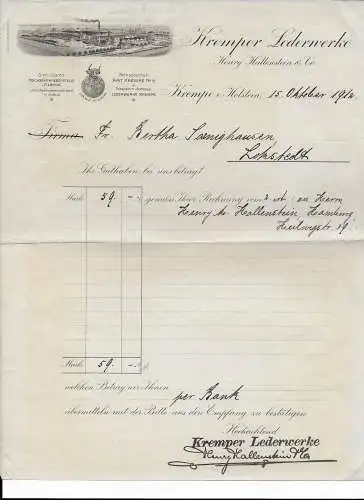 Kremper Lederwerke
Henry Hallenstein & Co.
Krempe i. Holstein, 15. Oktober 1910.
Firma Fr. Bertha
Lokstedt
Ihr Guthaben bei uns beträgt:
Mark 59. — gemäss Ihrer Rechnung vom 2. ds. an Herrn
Henry Hallenstein Hamburg
Heilwigstr. 19.
Mark 59. —
welchen Betrag wir Ihnen per Bank
übermitteln mit der Bitte uns den Empfang zu bestätigen
Hochachtend
Kremper Lederwerke
Henry Hallenstein & Co